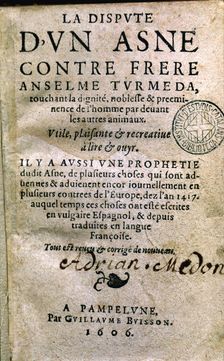 LA DISPVTE
D'VN ASNE
CONTRE FRERE
ANSELME TVRMEDA,
touchant la dignité, noblesse & preemi-
nence de l'homme par deuant
les autres animaux.
Vtile, plaisante & recreatiue
à lire & ouyr.
IL Y A AVSSI VNE PROPHETIE
dudit Asne, de plusieurs choses qui sont ad-
uenues & aduienent encor iournellement en
plusieurs contrees de l'Europe, dez l'an 1417.
auquel temps ces choses ont esté escrites
en vulgaire Espagnol, & depuis
traduites en langue
Françoise.
Tout est reueu & corrigé de nouueau.
Adrian. Medon
A PAMPELVNE,
Par GVILLAVME BVISSON.
1606.